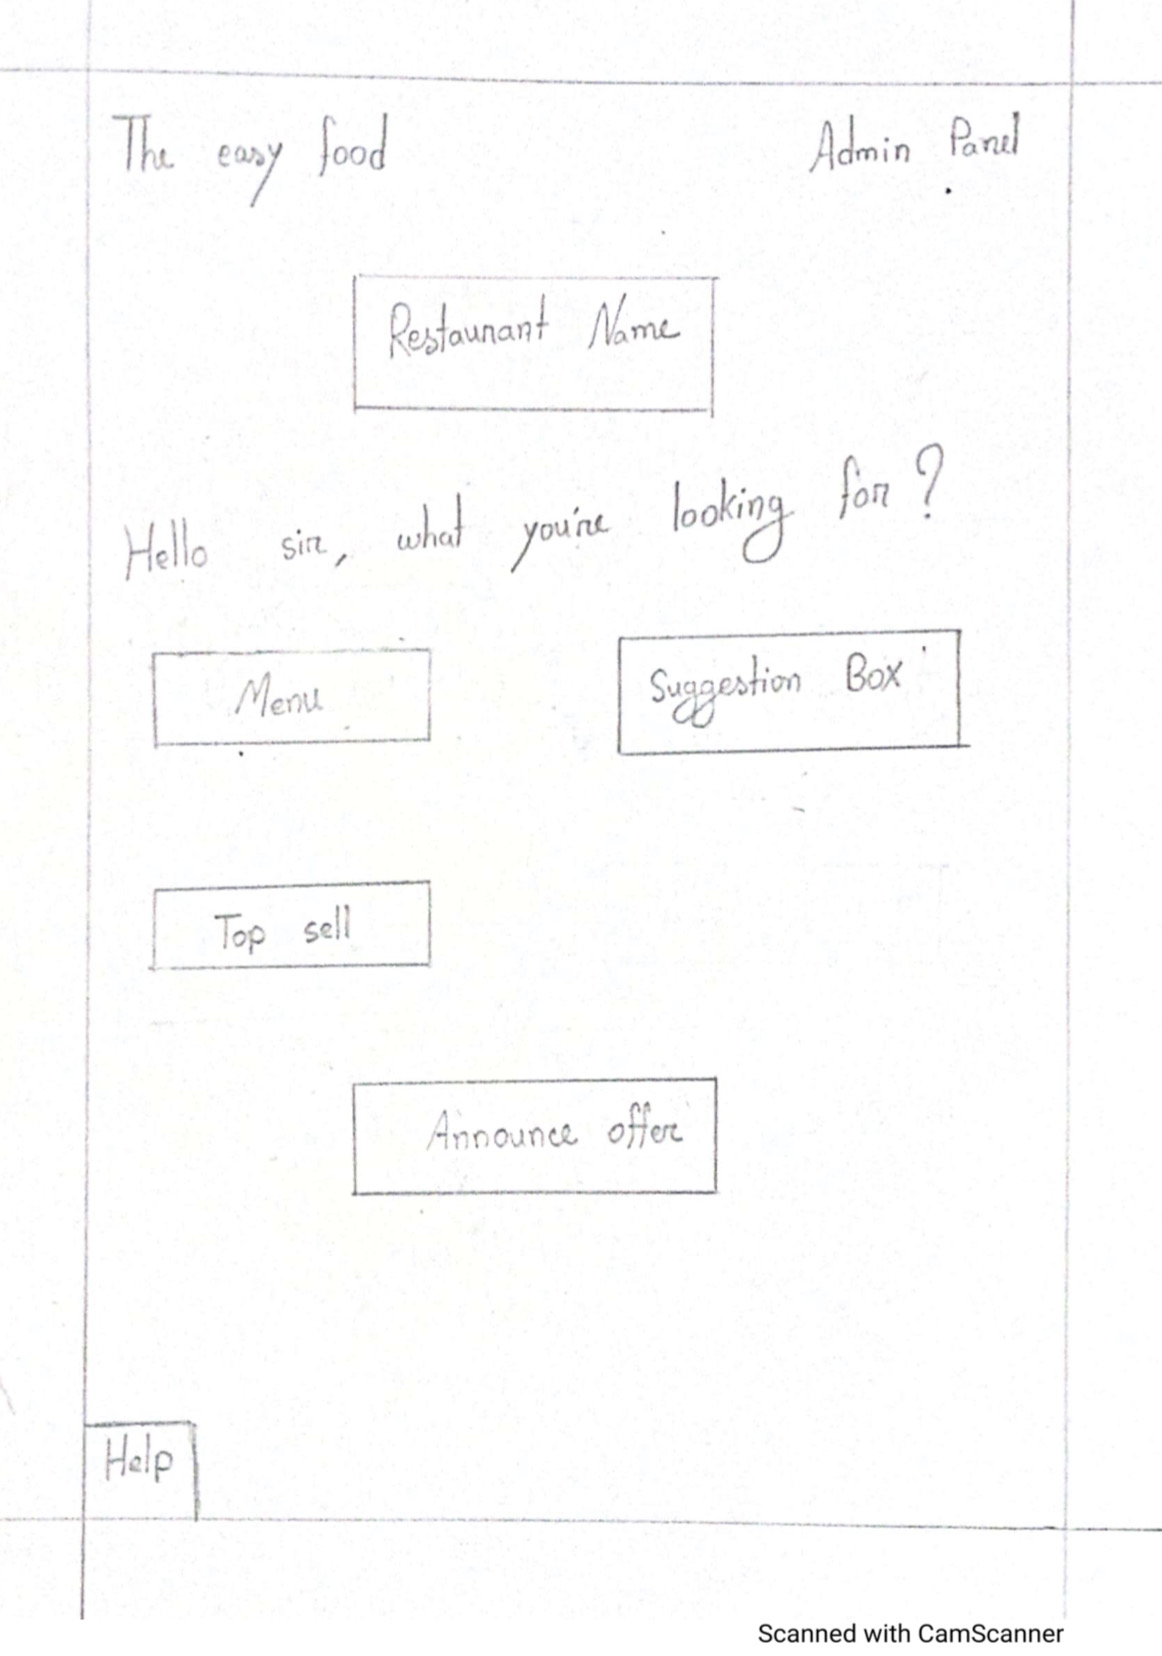 The easy food Admin Panel
Restaurant Name
Hello sir, what you're looking for?
Menu Suggestion Box
Top sell
Announce offer
Help
Scanned with CamScanner